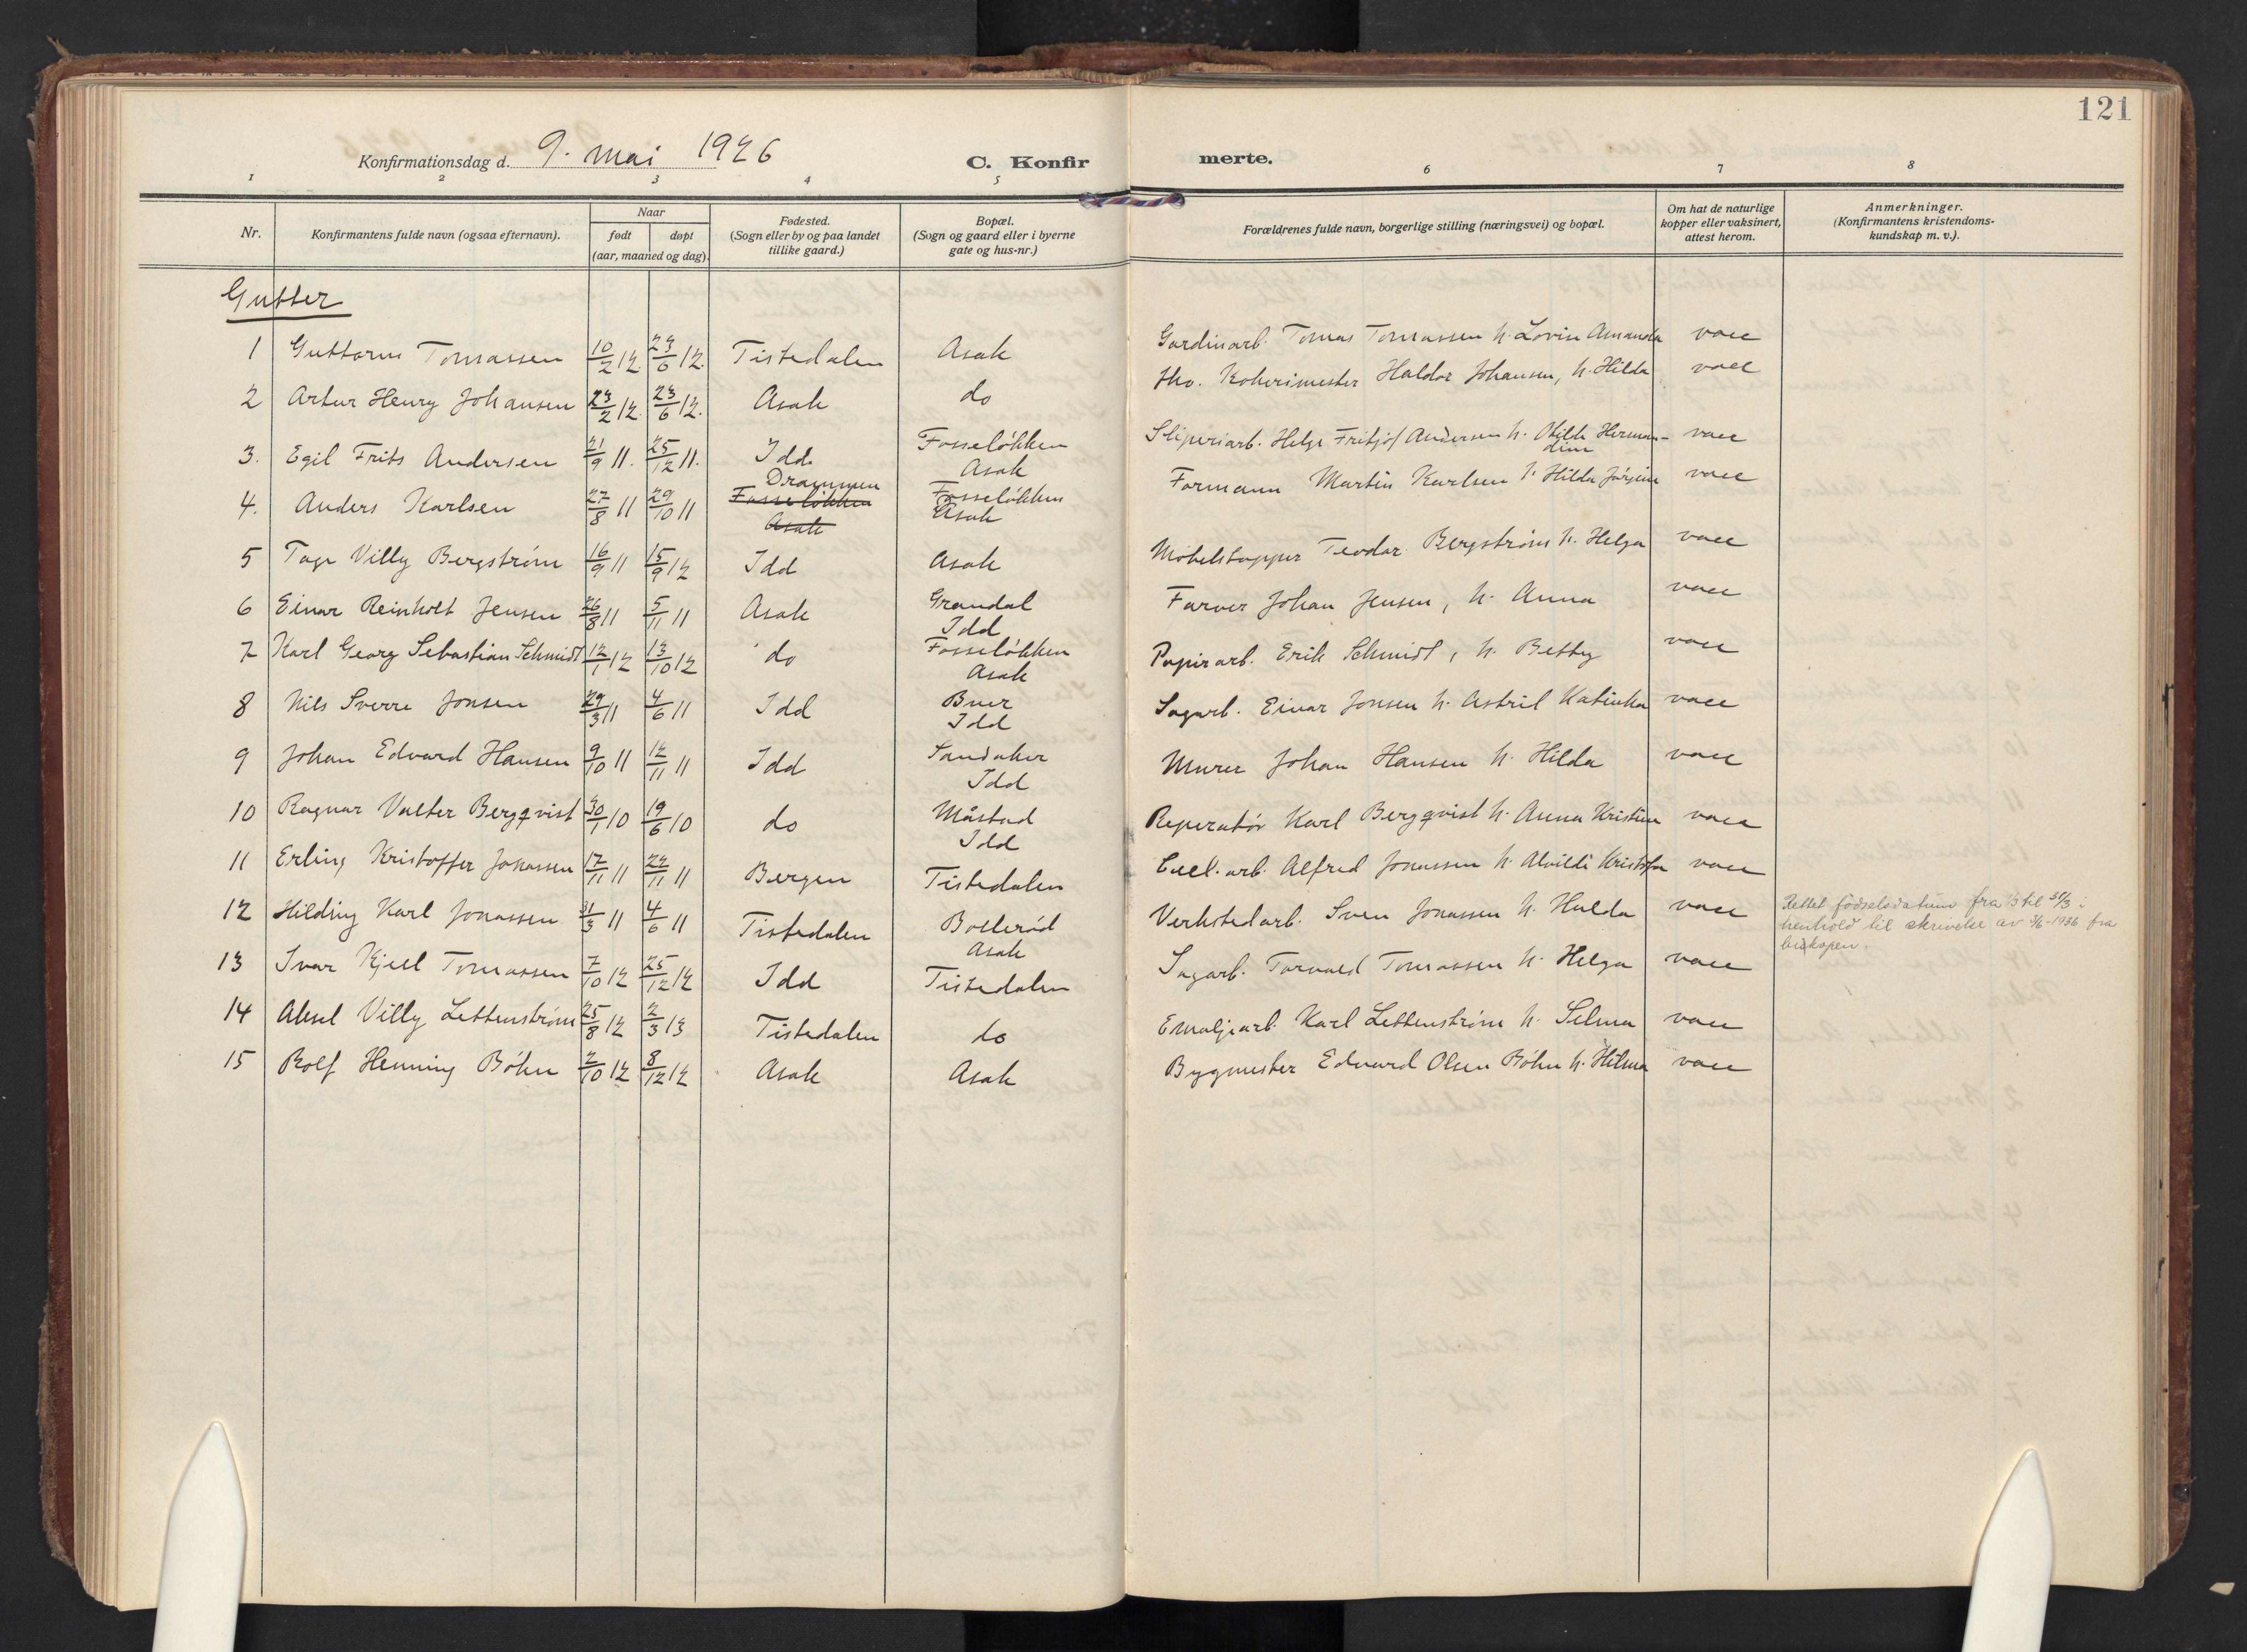 121
Konfirmationsdag d. 9. mai 1926
C. Konfirmerte.
1 2 3 4 5 6 7 8
Nr.
Konfirmantens fulde navn (ogsaa efternavn).
Naar
født døpt
(aar, maaned og dag).
Fødested.
(Sogn eller by og paa landet
tillike gaard.)
Bopæl.
(Sogn og gaard eller i byerne
gate og hus-nr.)
Forældrenes fulde navn, borgerlige stilling (næringsvei) og bopæl.
Om hat de naturlige
kopper eller vaksinert,
attest herom.
Anmerkninger.
(Konfirmantens kristendoms-
kundskap m. v.).
Gutter
1 Guttorm Tomassen 10/2 12. 23/6 12. Tistedalen Asak Gardinarb. Tomas Tomassen h. Lovise Amanda vacc
2 Artur Henry Johansen 23/2 12. 23/6 12. Asak do fhv. Kokerimester Haldor Johansen, h. Hilda vacc
3. Egil Frits Andersen 21/9 11. 25/12 11. Idd. Fosseløkken Asak Sliperiarb. Helge Fritjof Andersen h. Otilde Hermandine vacc
4. Anders Karlsen 27/8 11 29/10 11 Drammen Fosseløkken Asak Fosseløkken Asak Formann Martin Karlsen h. Hilda Jørgine vacc
5 Tage Villy Bergstrøm 16/9 11 15/9 12 Idd Asak Møbelstopper Teodor Bergstrøm h. Helga vacc
6 Einar Reinholt Jensen 26/8 11 5/11 11 Asak Grandal Idd Farver Johan Jensen, h. Anna vacc
7 Karl Georg Sebastian Schmidt 12/1 12 13/10 12 do Fosseløkken Asak Papirarb. Erik Schmidt, h. Betty vacc
8 Nils Sverre Jonsen 29/3 11 4/6 11 Idd Buer Idd Sagarb. Einar Jonsen h. Astril Katinka vacc
9 Johan Edvard Hansen 9/10 11 12/11 11 Idd Sandaker Idd Murer Johan Hansen h. Hilda vacc
10 Ragnar Valter Bergqvist 30/1 10 19/6 10 do Måstad Idd Reperatør Karl Bergqvist h. Anna Kristine vacc
11 Erling Kristoffer Jonassen 17/11 11 24/11 11 Bergen Tistedalen Cell. arb. Alfred Jonassen h. Alvilde Kristofa vacc
12 Hilding Karl Jonassen 31/3 11 4/6 11 Tistedalen Bollerød Asak Verkstedarb. Sven Jonassen h. Hulda vacc
Rettet fødselsdatum fra til 31/3 i
henhold til skrivelse av 1936 fra
biskopen.
13 Ivar Kjell Tomassen 7/10 12 25/12 12 Idd Tistedalen Sagarb. Torvald Tomassen h. Helga vacc
14 Aksel Villy Lettenstrøm 25/8 12 2/3 13 Tistedalen do Emaljearb. Karl Lettenstrøm h. Selma vacc
15 Rolf Henning Bøhn 2/10 12 8/12 12 Asak Asak Bygmester Edvard Olsen Bøhn h. Hilma vacc